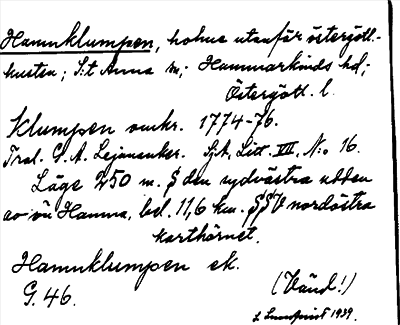 Hamnklumpen, holme utanför östergötl.-
kusten; S:t Anna sn; Hammarkinds hd;
Östergötl. l.
Klumpen omkr. 1774-76.
Trol. G. A. Lejonanker. Sjk, Litt. VII, N:o 16.
Läge 250 m. S den sydvästra udden
av ön Hamna, bel. 11,6 km. SSV nordöstra
karthörnet.
Hamnklumpen ek.
G. 46.
(Vänd!)
1939.